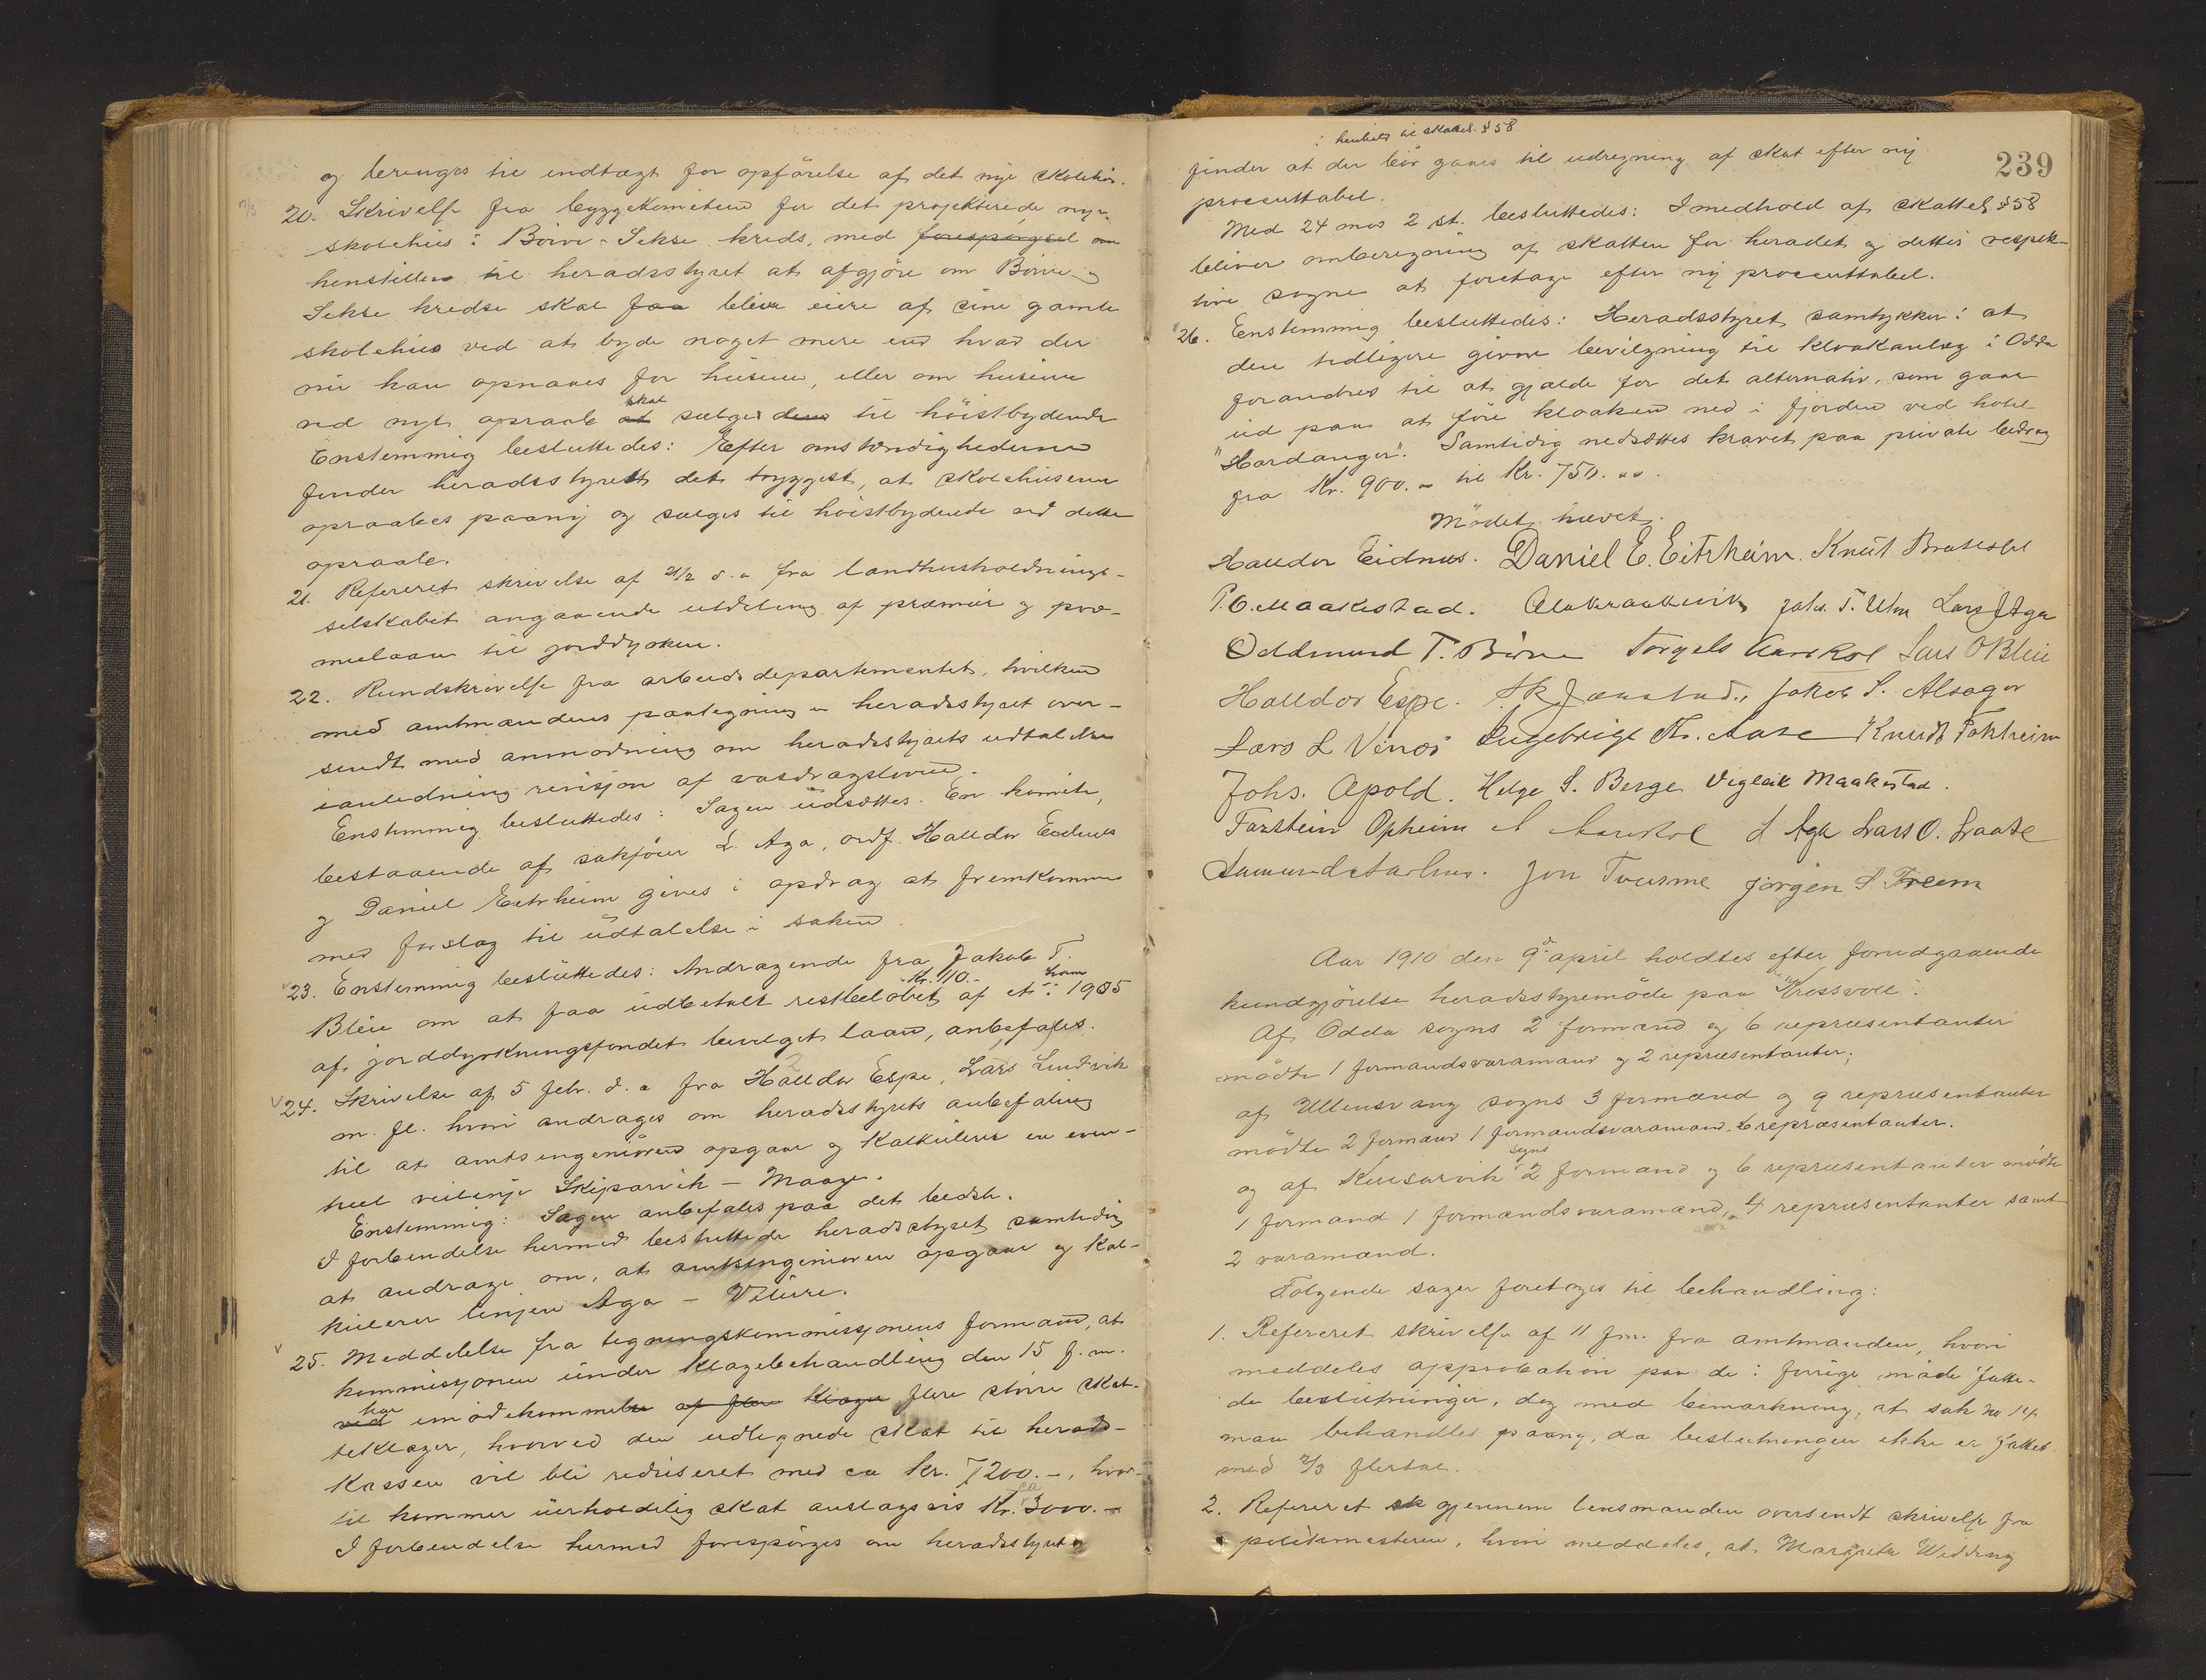 og beringes til indtægt for opførelse af det nye skolehus.
20. Skrivelse fra byggekomiteen for det projekterede nye
skolehus i Börve-Sekse kreds, med forespørgsel om
henstillen til heradsstyret at afgjöre om Börve og
Sekse kredse skal faa blive eiere af sine gamle
skolehus ved at byde noget mere end hvad der
nu kan opnaaes for husene, eller om husene
ved nyt opraab at skal sælges dem til höistbydende
Enstemmig besluttedes: Efter omstændighederne
finder heradsstyret det tryggest, at skolehusene
opraabes paany og sælges til höistbydende ved dette
opraab.
21. Refereret skrivelse af 21/2 d.a fra landhusholdnings-
selskabet angaaende uddeling af præmier og præ-
mielaan til jorddyrkere.
22. Rundskrivelse fra arbeidsdepartementet, hvilken
med amtmandens paategning er heradsstyret over-
sendt med anmodning om heradsstyrets udtalelse
ianledning revisjon af vasdragsloven.
Enstemmig besluttedes: Sagen udsættes. En komite,
bestaaende af sakförer L. Aga, ordf. Halldor Eidnes
og Daniel Eitrheim gives i opdrag at fremkomme
med forslag til udtalelse i saken.
23. Enstemmig besluttedes: Andragende fra Jakob T.
Bleie om at faa udbetalt restbelöbet kr. 110.- af et ham i 1905
af jorddyrkningsfondet bevilget laan, anbefales.
24. Skrivelse af 5 febr. d.a fra Halldor Espe, Lars Lindvik
m. fl. hvori andrages om heradsstyrets anbefaling
til at amtsingeniören opgaar og kalkulerer en even-
tuel veilinje Skiparvik - Maage.
Enstemmig: Sagen anbefales paa det bedste.
I forbindelse hermed besluttede heradsstyret samtidig
at andrage om, at amtsingeniören opgaar og kal-
kulerer linjen Aga - Velure.
25. Meddelelse fra ligningskommissjonens formand, at
kommissjonen under klagebehandling den 15 f.m.
ved har imödekommelse af flere klager flere större skat-
teklager, hvorved den udlignede skat til herads-
kassen vil bli reduseret med ca kr. 7200.-, hvor-
til kommer uerholdelig skat anslagsvis ca Kr. 3000.-
I forbindelse hermed forespörges om heradsstyret
239
i henhold til skattel. §58
finder at der bör gaaes til udregning af skat efter ny
procenttabel.
Med 24 mod 2 st. besluttedes: I medhold af skattel. §58
bliver omberegning af skatten for heradet og dettes respek-
tive sogne at foretage efter ny procenttabel.
26. Enstemmig besluttedes: Heradsstyret samtykker i at
den tidligere givne bevilgning til kloakanlæg i Odda
forandres til at gjælde for det alternativ, som gaar
ud paa at före kloaken ned i fjorden ved hotel
"Hardanger". Samtidig nedsættes kravet paa private bidrag
fra kr. 900.- til kr. 750.00.
Mödet hævet.
Halldor Eidnes. Daniel E. Eitrheim. Knut Bratabö
P. O. Maakestad. Johs. T. Lars J Aga
Oddmund T. Börve Torgels Aarskog Lars O Bleie
Halldor Espe. Jaastad. Jakob S. Alsager
Lars L Vinæs Ingebrigt Aase Knudt Tokheim
Johs. Apold. Helge S. Berge Vigleik Maakestad.
Torstein Opheim L Aga Lars O. Kraase
Jon Tveisme Jörgen S. Freim
Aar 1910 den 9de april holdtes efter forudgaaende
kundgjörelse heradsstyremöde paa Kressvoll.
Af Odda sogns 2 formænd og 6 repræsentanter
mödte 1 formandsvaramand og 2 repræsentanter;
af Ullensvang sogns 3 formænd og 9 repræsentanter
mödte 2 formænd 1 formandsvaramand. 6 repræsentanter.
og af Kinsarvik sogns 2 formænd og 6 repræsentanter mödte
1 formand 1 formandsvaramand, 4 repræsentanter samt
2 varamænd.
Fölgende sager foretoges til behandling:
1. Refereret skrivelse af 11 f.m. fra amtmanden, hvori
meddeles approbation paa de i forrige möde fatte-
de beslutninger, dog med bemærkning, at sak no 14
maa behandles paany, da beslutningen ikke er fattet
med 2/3 flertal.
2. Refereret sk gjennem lensmanden oversendt skrivelse fra
politimesteren, hvori meddeles, at Margreta Widding